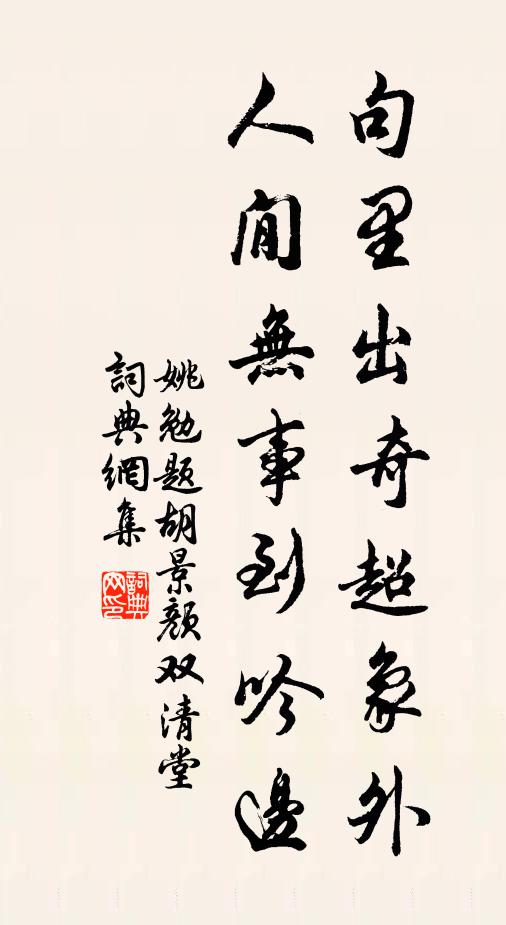 句里出奇超象外
人間無事到吟邊
姚勉题胡景颜双清堂
詞典網集
詞典網印